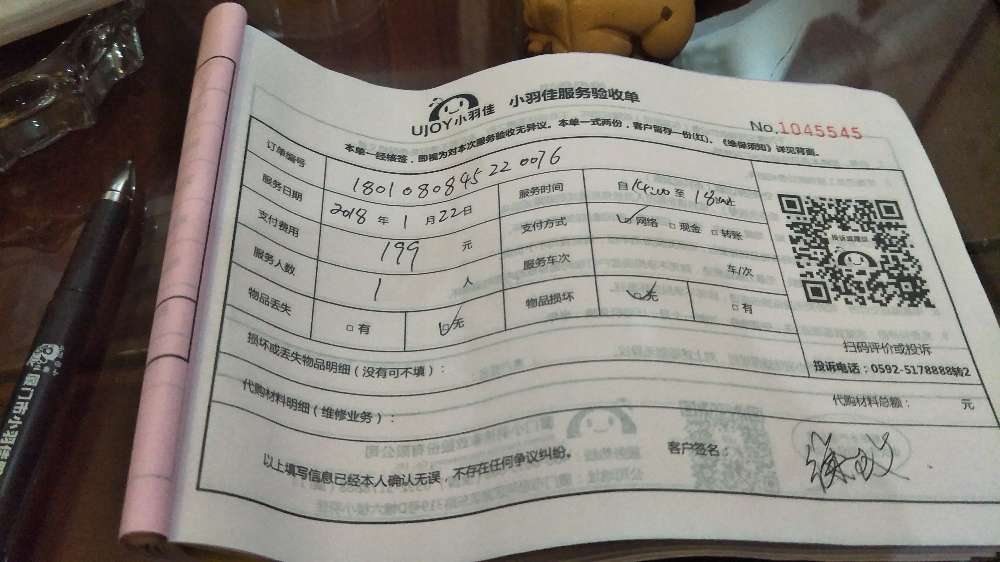 UJOY小羽佳 小羽佳服务验收单
No.1045545
本单一经核签，即视为对本次服务验收无异议。本单一式两份，客户留存一份(红)。《维保须知》详见背面。
订单编号 1801080845220076
服务日期 2018 年 1 月 22 日 服务时间 自 14:00 至 18:00
支付费用 199 元 支付方式 ☑网络 □现金 □转账
服务人数 1 人 服务车次 车/次
物品丢失 □有 ☑无 物品损坏 ☑无 □有
投诉或建议
扫码评价或投诉
投诉电话：0592-5178888转2
损坏或丢失物品明细（没有可不填）：
代购材料明细（维修业务）： 代购材料总额： 元
以上填写信息已经本人确认无误，不存在任何争议纠纷。 客户签名：
厦门市小羽佳